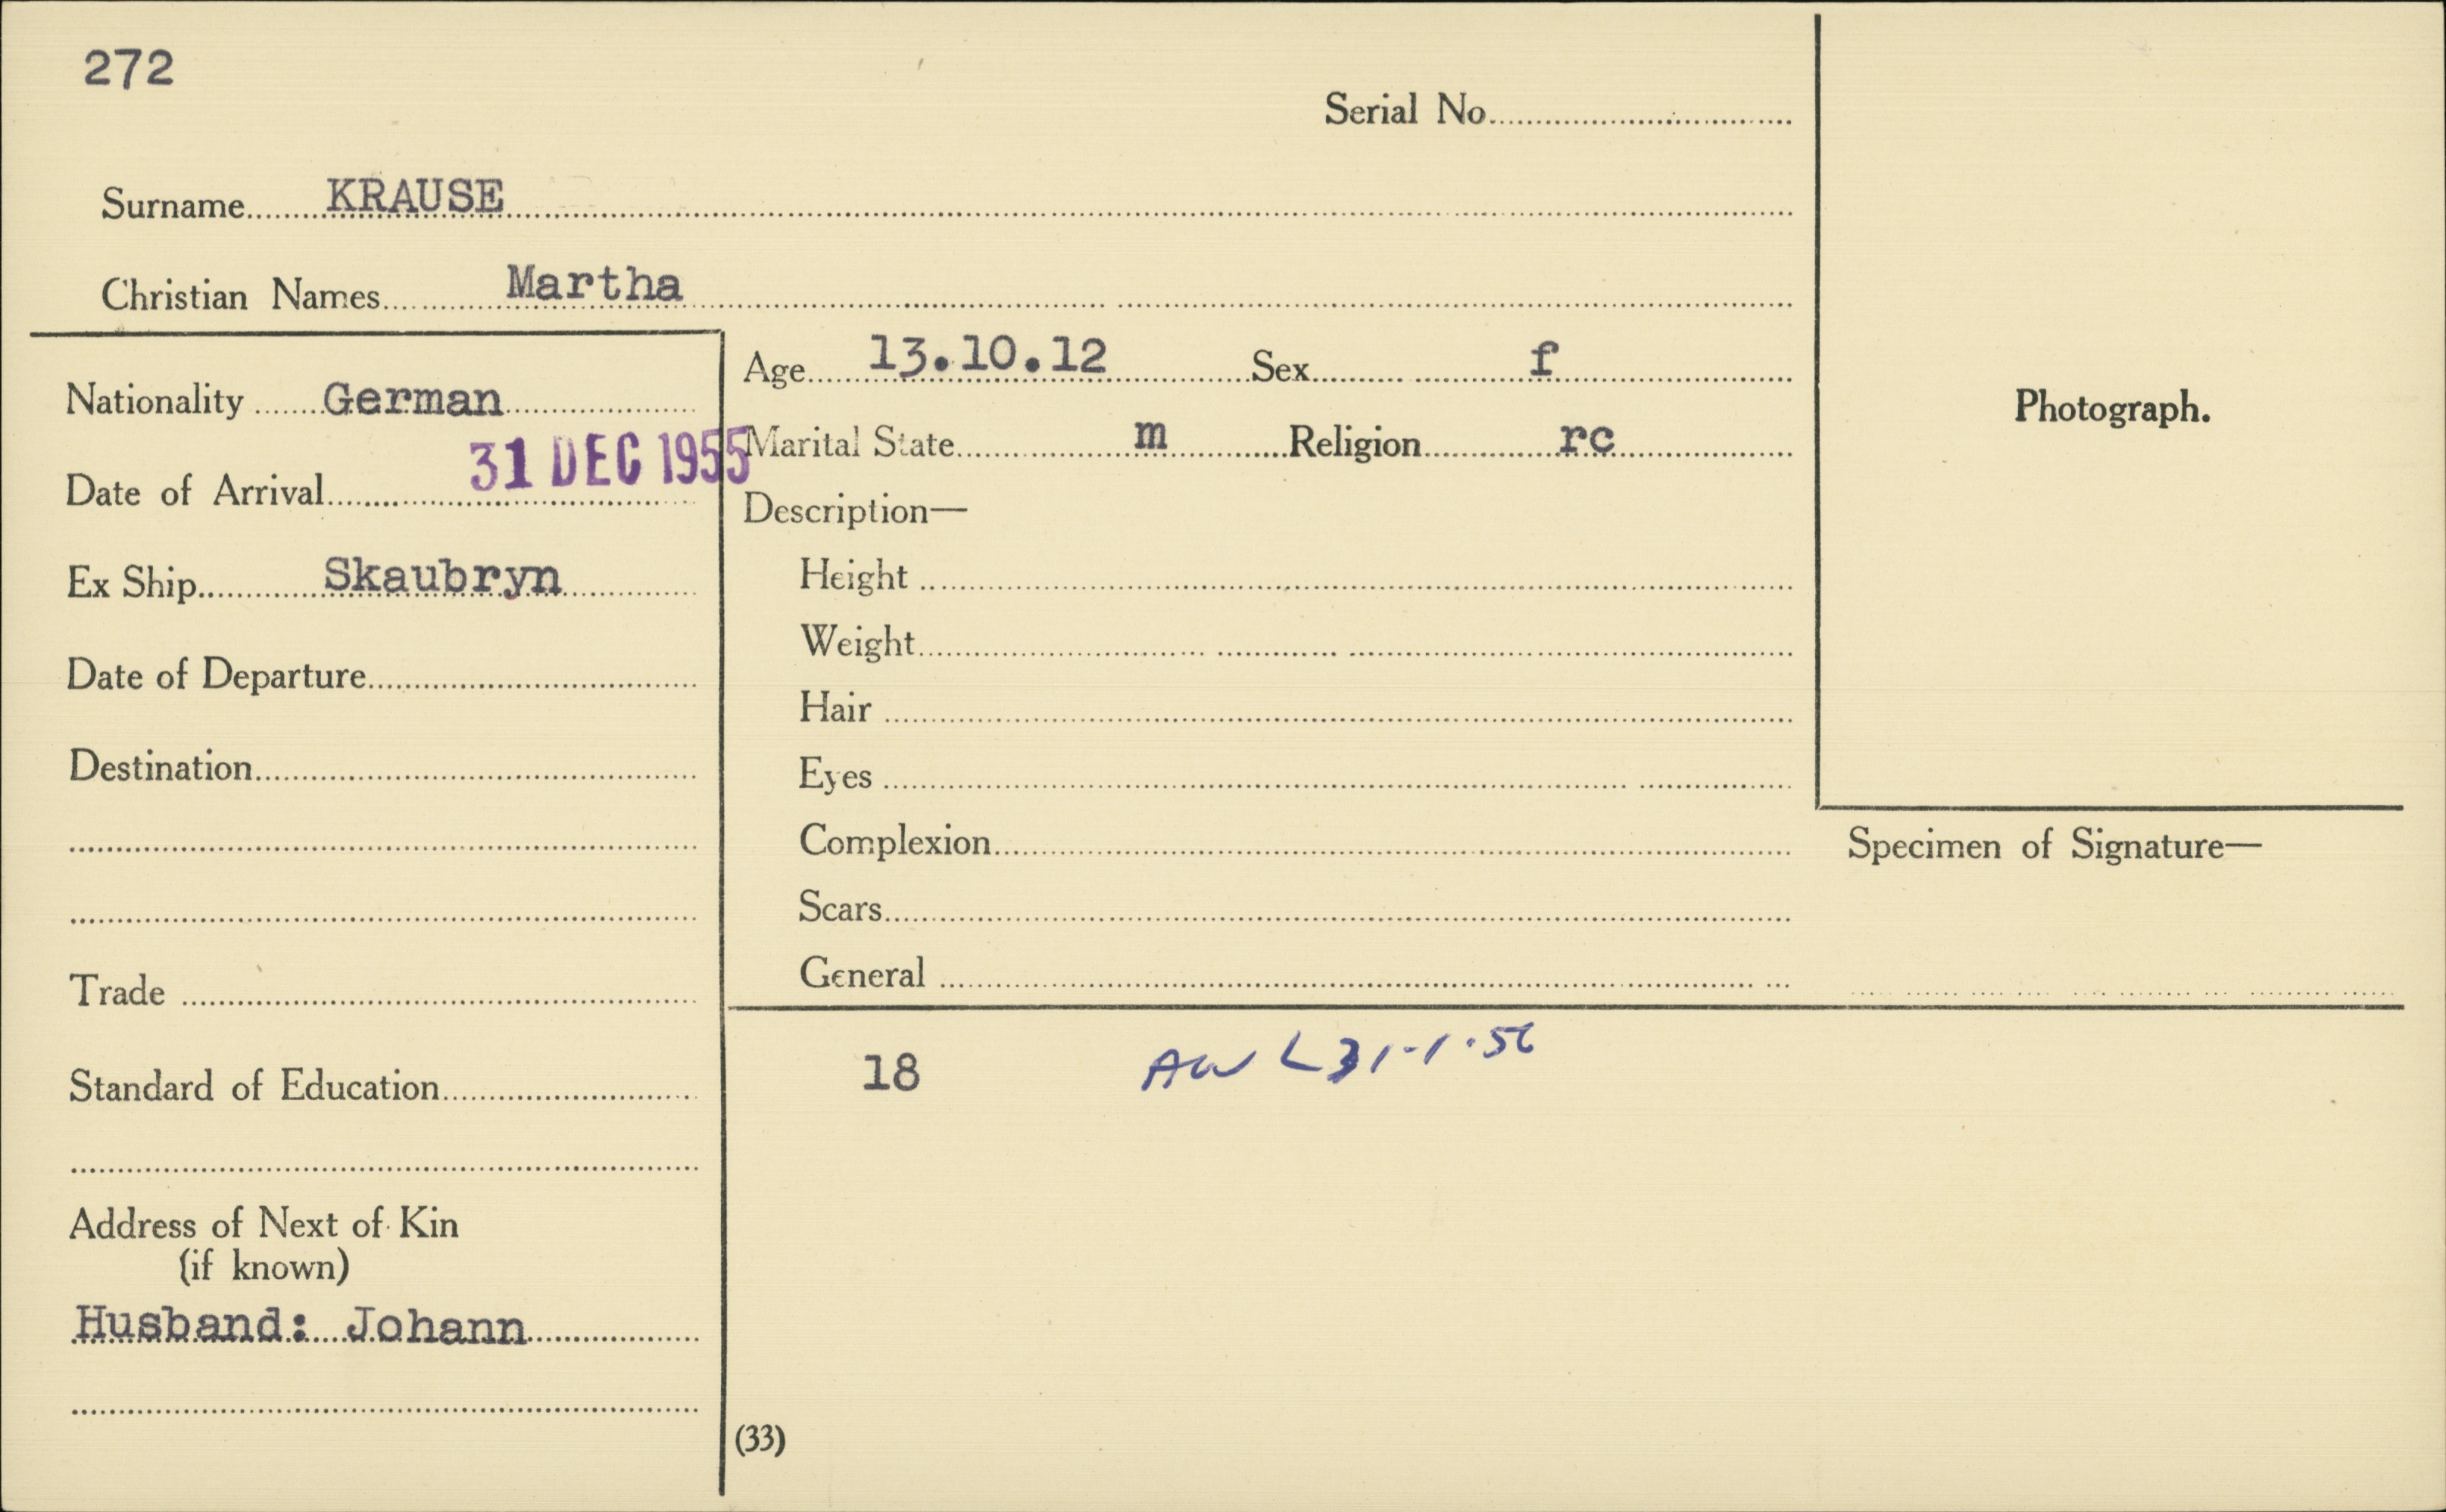 272
Serial No.
Surname KRAUSE
Christian Names Martha
Nationality German
Date of Arrival 31 DEC 1955
Ex Ship Skaubryn
Date of Departure
Destination
Trade
Standard of Education
Address of Next of Kin
(if known)
Husband: Johann
Age 13.10.12 Sex f
Marital State m Religion rc
Description—
Height
Weight
Hair
Eyes
Complexion
Scars
General
Photograph.
Specimen of Signature—
18 AWL 31-1-56
(33)